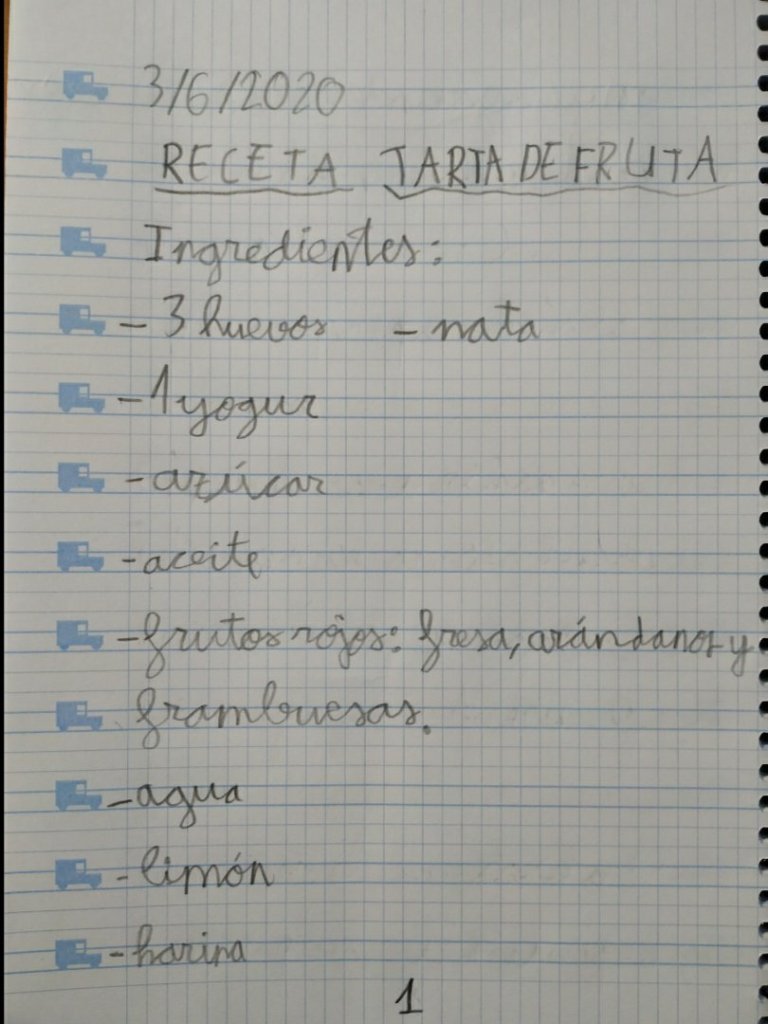 3/6/2020
RECETA TARTA DE FRUTA
Ingredientes:
- 3 huevos - nata
- 1 yogur
- azúcar
- aceite
- frutos rojos: fresa, arándanos y
frambuesas.
- agua
- limón
- harina
1